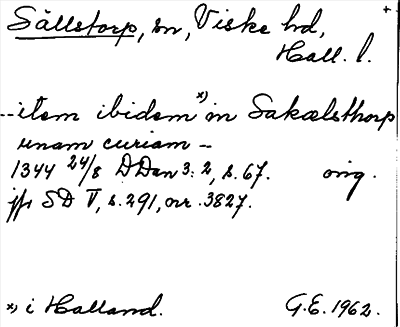 Sällstorp, sn, Viske hd, +
Hall. l.
--item ibidem *) in Sakælsthorp
unam curiam –
1344 24/8 DDan 3:2, s. 67. orig.
jfr SD V, s. 291, nr. 3827.
*) i Halland. G.E. 1962.